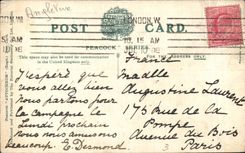 Angleterre
LONDON. W
POST CARD.
PEACOCK SERIES
This space may also be used for communication
in the United Kingdom only.
ADDRESS ONLY.
France
J'espère que
vous allez bien
Nous partons pour
la Campagne le
Lundi prochain
Nous nous amusons
beaucoup G. Desmond
Madlle
Augustine Laurent
175 Rue de la
Pompe
Avenue du Bois
Paris